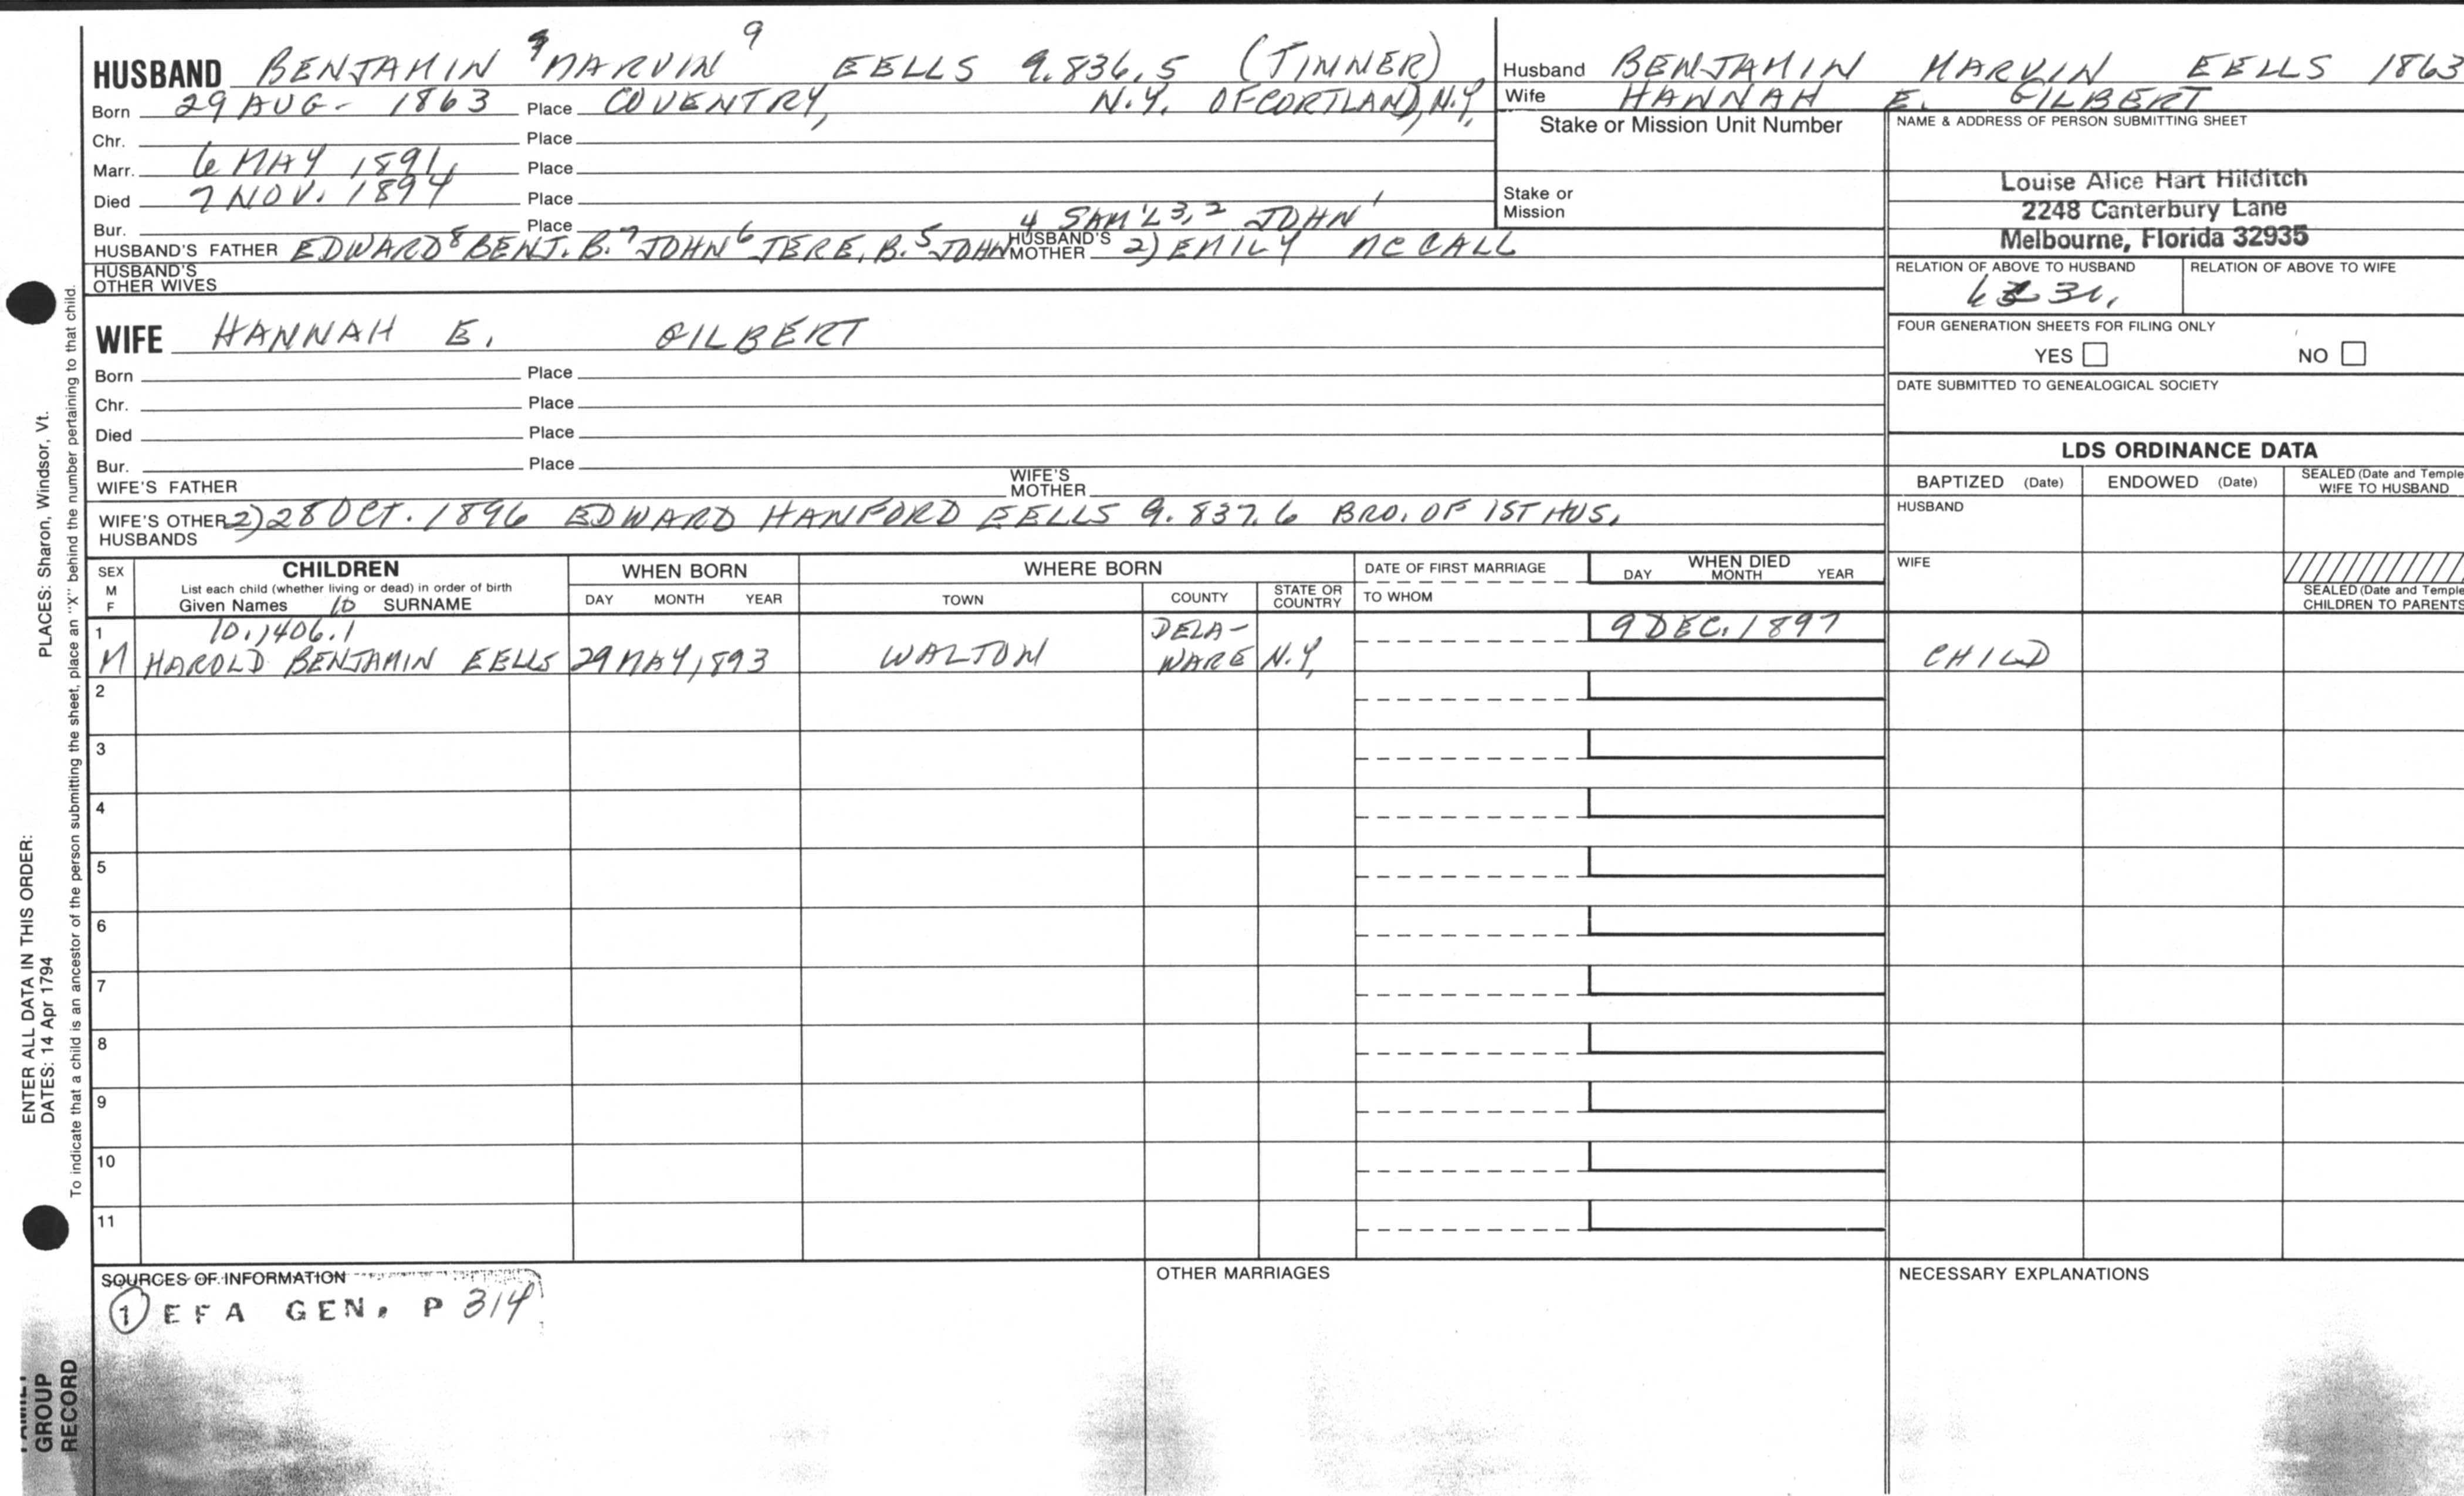 HUSBAND BENJAMIN MARVIN 9 EELLS 9.836.5 (TINNER)
Born 29 AUG- 1863 Place COVENTRY, N.Y. OF CORTLAND, N.Y.
Chr. Place
Marr. 6 MAY 1891 Place
Died 7 NOV. 1894 Place
Bur. Place 4 SAM'L 3, 2 JOHN 1
HUSBAND'S FATHER EDWARD 8 BENJ. B. 7 JOHN 6 JERE. B. 5 JOHN HUSBAND'S MOTHER 2) EMILY McCALL
HUSBAND'S OTHER WIVES
WIFE HANNAH E. GILBERT
Born Place
Chr. Place
Died Place
Bur. Place
WIFE'S FATHER WIFE'S MOTHER
WIFE'S OTHER HUSBANDS 2) 28 OCT. 1896 EDWARD HANFORD EELLS 9.837.6 BRO. OF 1ST HUS.
Husband BENJAMIN MARVIN EELLS 1863
Wife HANNAH E. GILBERT
Stake or Mission Unit Number
Stake or Mission
NAME & ADDRESS OF PERSON SUBMITTING SHEET
Louise Alice Hart Hilditch
2248 Canterbury Lane
Melbourne, Florida 32935
RELATION OF ABOVE TO HUSBAND RELATION OF ABOVE TO WIFE
FOUR GENERATION SHEETS FOR FILING ONLY
YES NO
DATE SUBMITTED TO GENEALOGICAL SOCIETY
LDS ORDINANCE DATA
BAPTIZED (Date) ENDOWED (Date) SEALED (Date and Temple
WIFE TO HUSBAND
HUSBAND
WIFE
SEALED (Date and Temple
CHILDREN TO PARENTS
SEX
M
F
CHILDREN
List each child (whether living or dead) in order of birth
Given Names 10 SURNAME
WHEN BORN
DAY MONTH YEAR
WHERE BORN
TOWN COUNTY STATE OR COUNTRY
DATE OF FIRST MARRIAGE
TO WHOM
WHEN DIED
DAY MONTH YEAR
1 10.1406.1 DELA- 9 DEC. 1897
M HAROLD BENJAMIN EELLS 29 MAY, 1893 WALTON WARE N.Y. CHILD
2
3
4
5
6
7
8
9
10
11
SOURCES OF INFORMATION
1 EFA GEN. P 314
OTHER MARRIAGES
NECESSARY EXPLANATIONS
ENTER ALL DATA IN THIS ORDER:
DATES: 14 Apr 1794 PLACES: Sharon, Windsor, Vt.
To indicate that a child is an ancestor of the person submitting the sheet, place an "X" behind the number pertaining to that child.
FAMILY
GROUP
RECORD